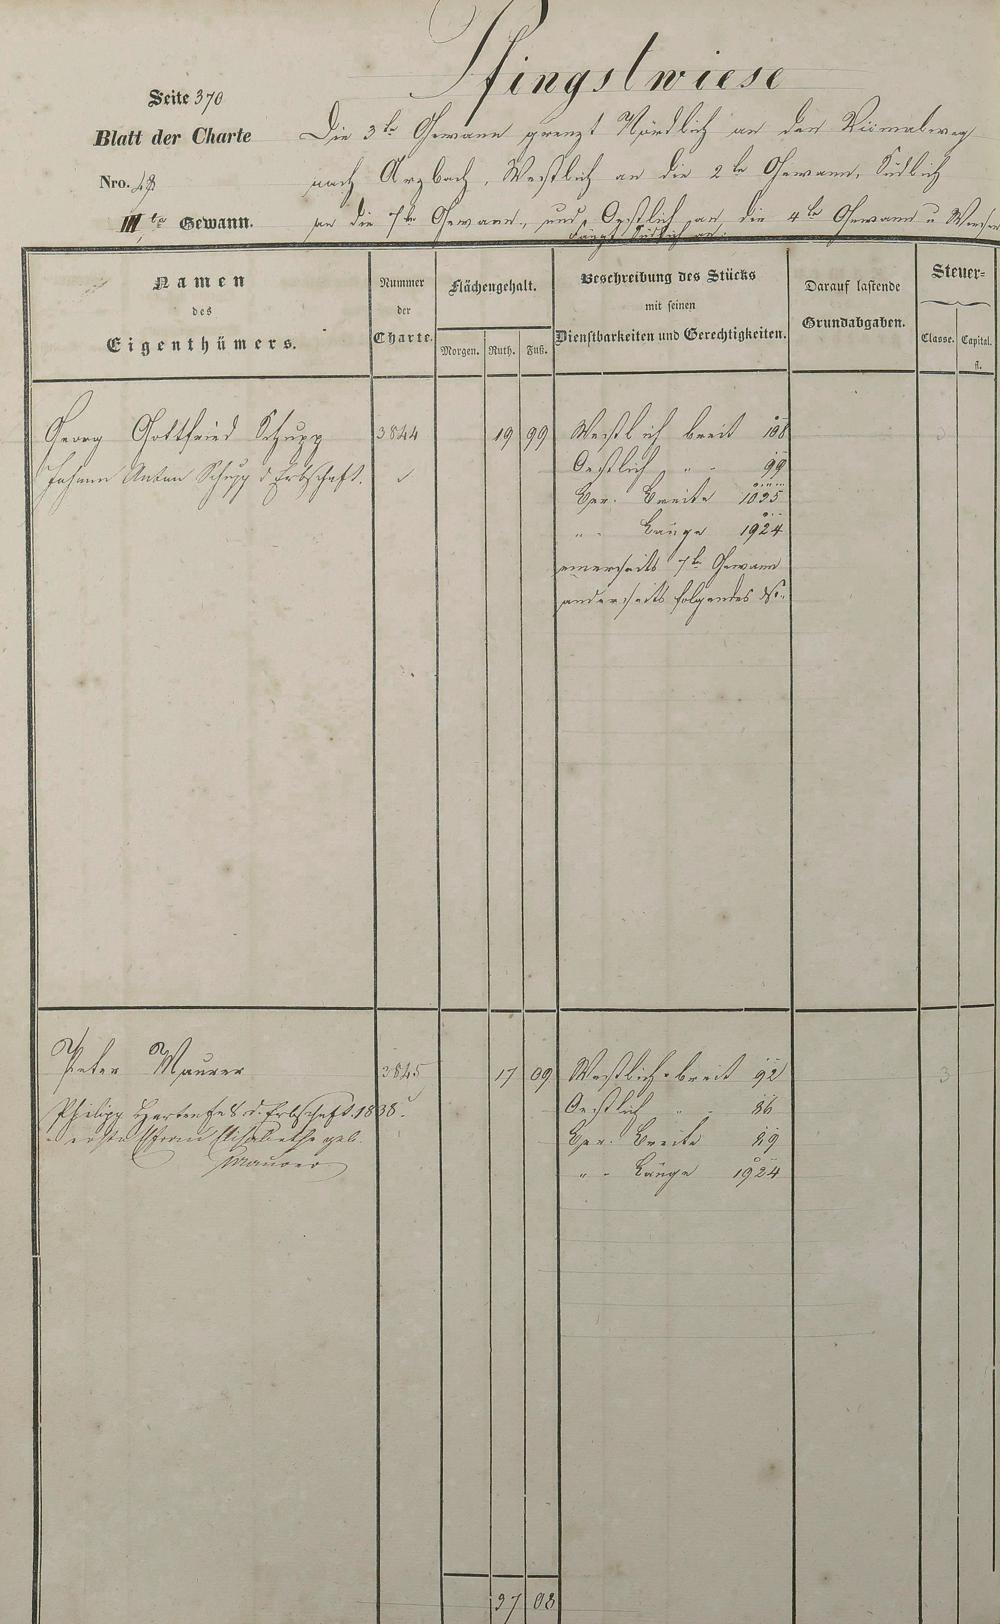 Pfingstwiese
Seite 370
Blatt der Charte
Nro.
III te Gewann.
Die 3te Gewann grenzt Nördlich an den
nach Arzbach, Westlich an die 2te Gewann, Südlich
an die 7te Gewann, und Oestlich an die 4te Gewann u
Fängt Südlich an.
Namen
des
Eigenthümers.
Nummer
der
Charte.
Flächengehalt.
Morgen. Ruth. Fuß.
Beschreibung des Stücks
mit seinen
Dienstbarkeiten und Gerechtigkeiten.
Darauf lastende
Grundabgaben.
Steuer-
Classe. Capital.
fl.
Georg Gottfried Schupp 3844 19 99 Westlich breit 108
Johann Anton Schupp d Erbschaft. Oestlich " " 99
Ber. Breite 1035
" " Länge 1924
einerseits 7te Gewann
anderseits folgendes
Peter Maurer 3845 17 09 Westlich breit 92 3
Philipp Hartenfels d. Erbschaft. 1838. Oestlich " " 86
erste Ehefrau Elisabetha geb. Ber. Breite 89
Maurer " " Länge 1924
37 08